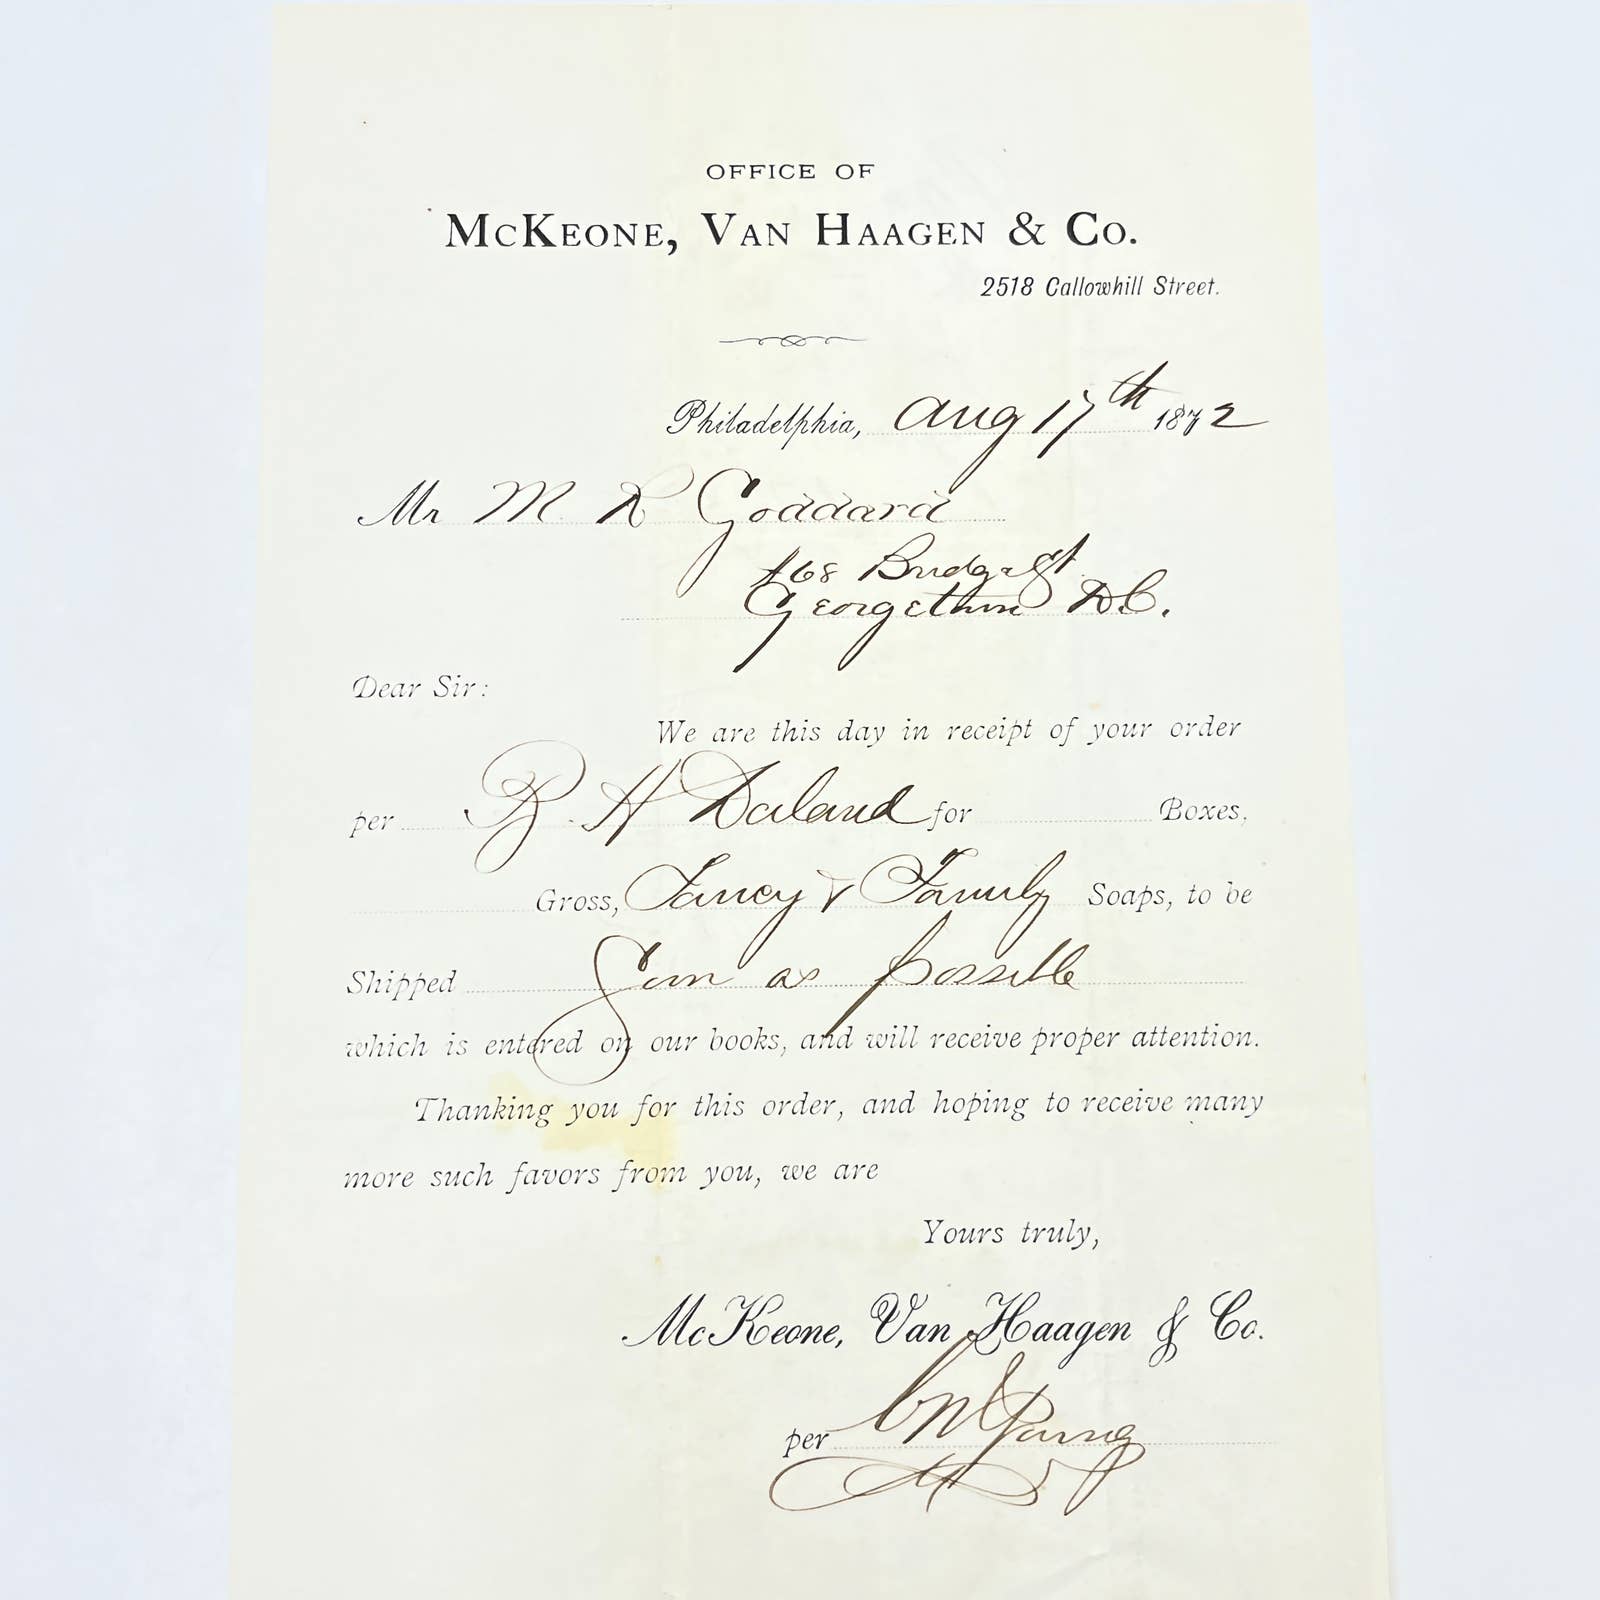 OFFICE OF
McKeone, Van Haagen & Co.
2518 Callowhill Street.
Philadelphia, Aug 17th 1872
Mr M. R Goddard
168 Bridge St.
Georgetown D.C.
Dear Sir:
We are this day in receipt of your order
per H Daland for Boxes,
Gross, Fancy & Family Soaps, to be
Shipped Soon as possible
which is entered on our books, and will receive proper attention.
Thanking you for this order, and hoping to receive many
more such favors from you, we are
Yours truly,
McKeone, Van Haagen & Co.
per Young